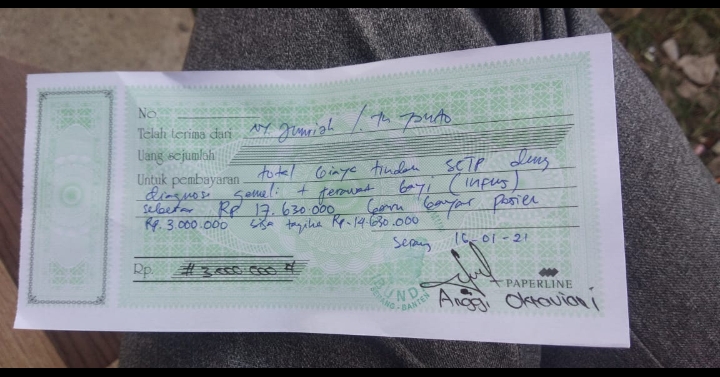 No
Telah terima dari Ny. Jumiah / Tn
Uang sejumlah
Untuk pembayaran total biaya tindak SCTP deng
diagnosi gemeli + perawat bayi (infus)
sebesar Rp 17.630.000 baru bayar pasien
Rp. 3.000.000 sisa tagiha Rp. 14.630.000
Serang 16-01-21
Rp. # 3.000.000 #
BUNDA
SERANG-BANTEN
PAPERLINE
Anggi Oktaviani